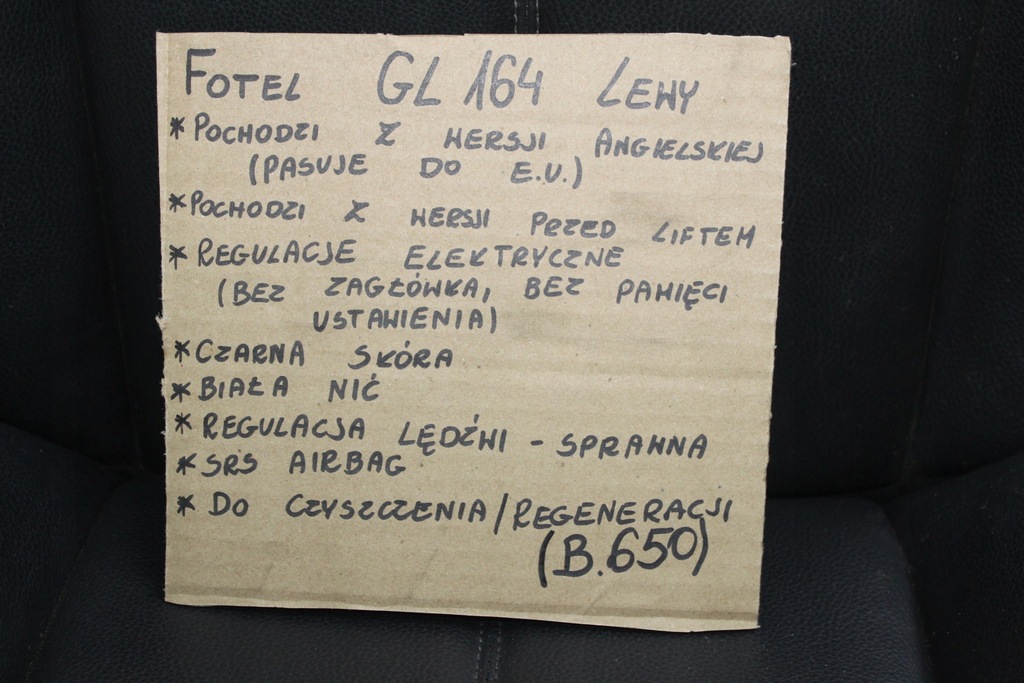 FOTEL GL 164 LEWY
* POCHODZI Z WERSJI ANGIELSKIEJ
(PASUJE DO E.U.)
* POCHODZI Z WERSJI PRZED LIFTEM
* REGULACJE ELEKTRYCZNE
(BEZ ZAGŁÓWKA, BEZ PAMIĘCI
USTAWIENIA)
* CZARNA SKÓRA
* BIAŁA NIĆ
* REGULACJA LĘDŹWI - SPRAWNA
* SRS AIRBAG
* DO CZYSZCZENIA/REGENERACJI
(B.650)